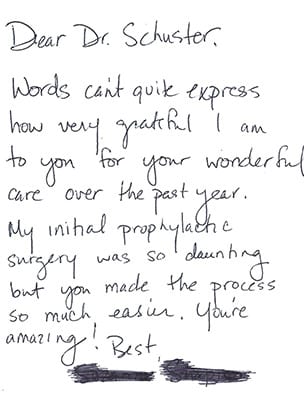 Dear Dr. Schuster,
Words can't quite express
how very grateful I am
to you for your wonderful
care over the past year.
My initial prophylactic
surgery was so daunting
but you made the process
so much easier. You're
amazing! Best,